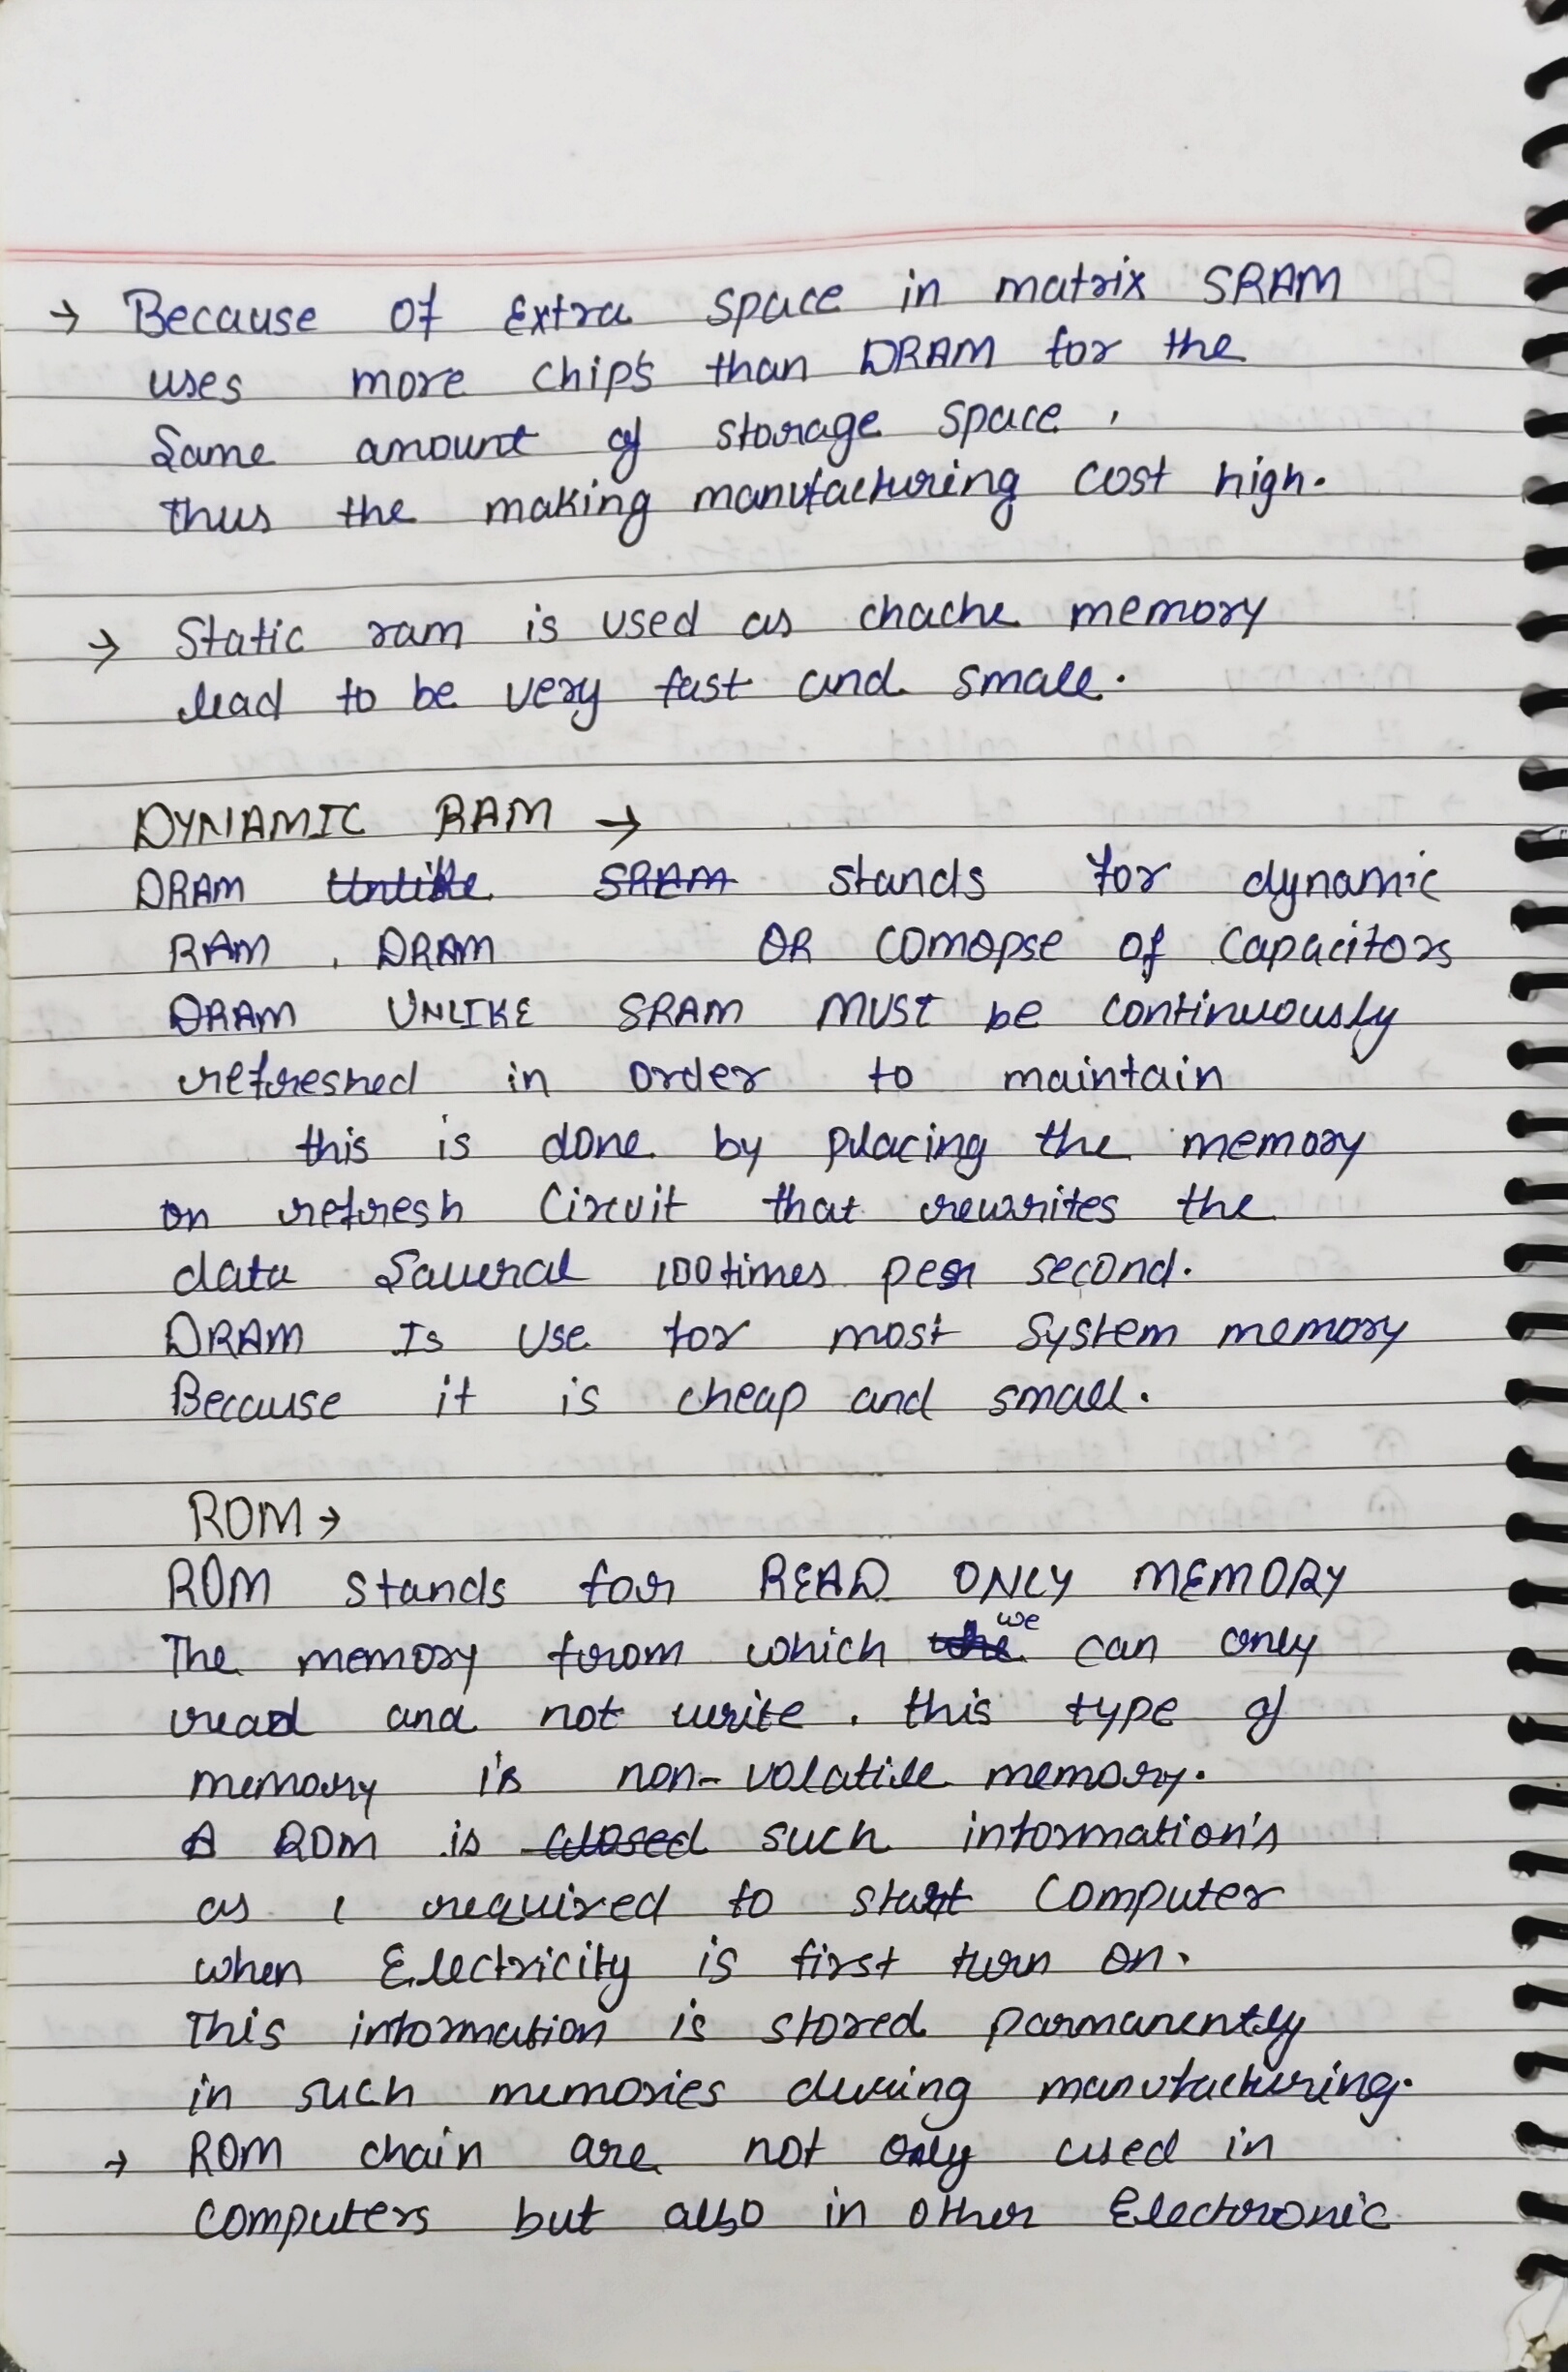 → Because of Extra space in matrix SRAM
uses more chip's than DRAM for the
Same amount of storage space,
thus the making manufacturing cost high.
→ Static ram is used as chache memory
lead to be very fast and small.
DYNAMIC RAM →
DRAM Unlike SRAM stands for dynamic
RAM. DRAM OR comopse of Capacitors
DRAM UNLIKE SRAM MUST be continuously
refreshed in order to maintain
this is done by placing the memory
on refresh Circuit that rewrites the
data Saveral 100times per second.
DRAM Is Use for most System memory
Because it is cheap and small.
ROM →
ROM stands for READ ONLY MEMORY
The memory from which we can only
read and not write. this type of
memory is non-volatile memory.
A ROM is closed such information's
as I required to start Computer
when Electricity is first turn on.
This information is stored parmanently
in such memories during manufacturing.
→ ROM chain are not only used in
Computers but also in other Electronic